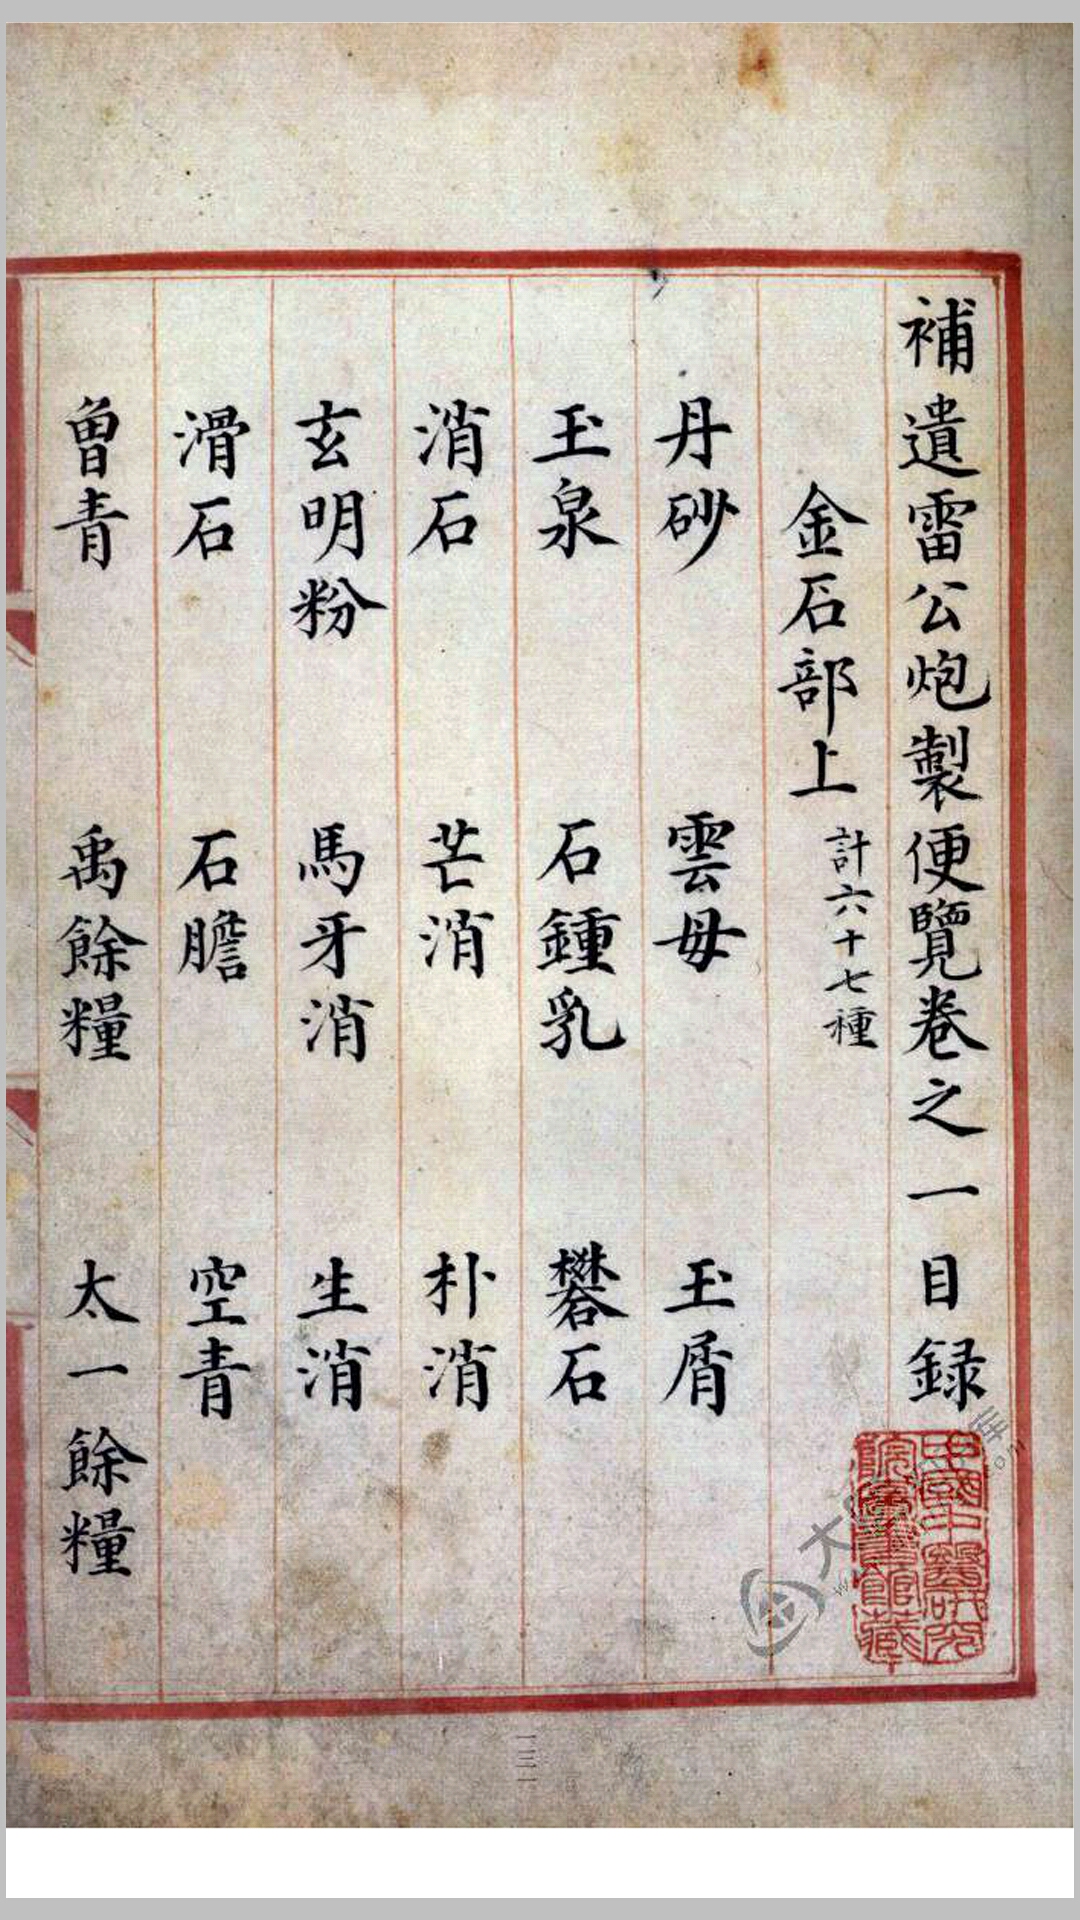 補遺雷公炮製便覽卷之一目録
金石部上 計六十七種
丹砂 雲母 玉屑
玉泉 石鍾乳 礬石
消石 芒消 朴消
玄明粉 馬牙消 生消
滑石 石膽 空青
曾青 禹餘糧 太一餘糧
中國中醫研究
院圖書館藏
一三一